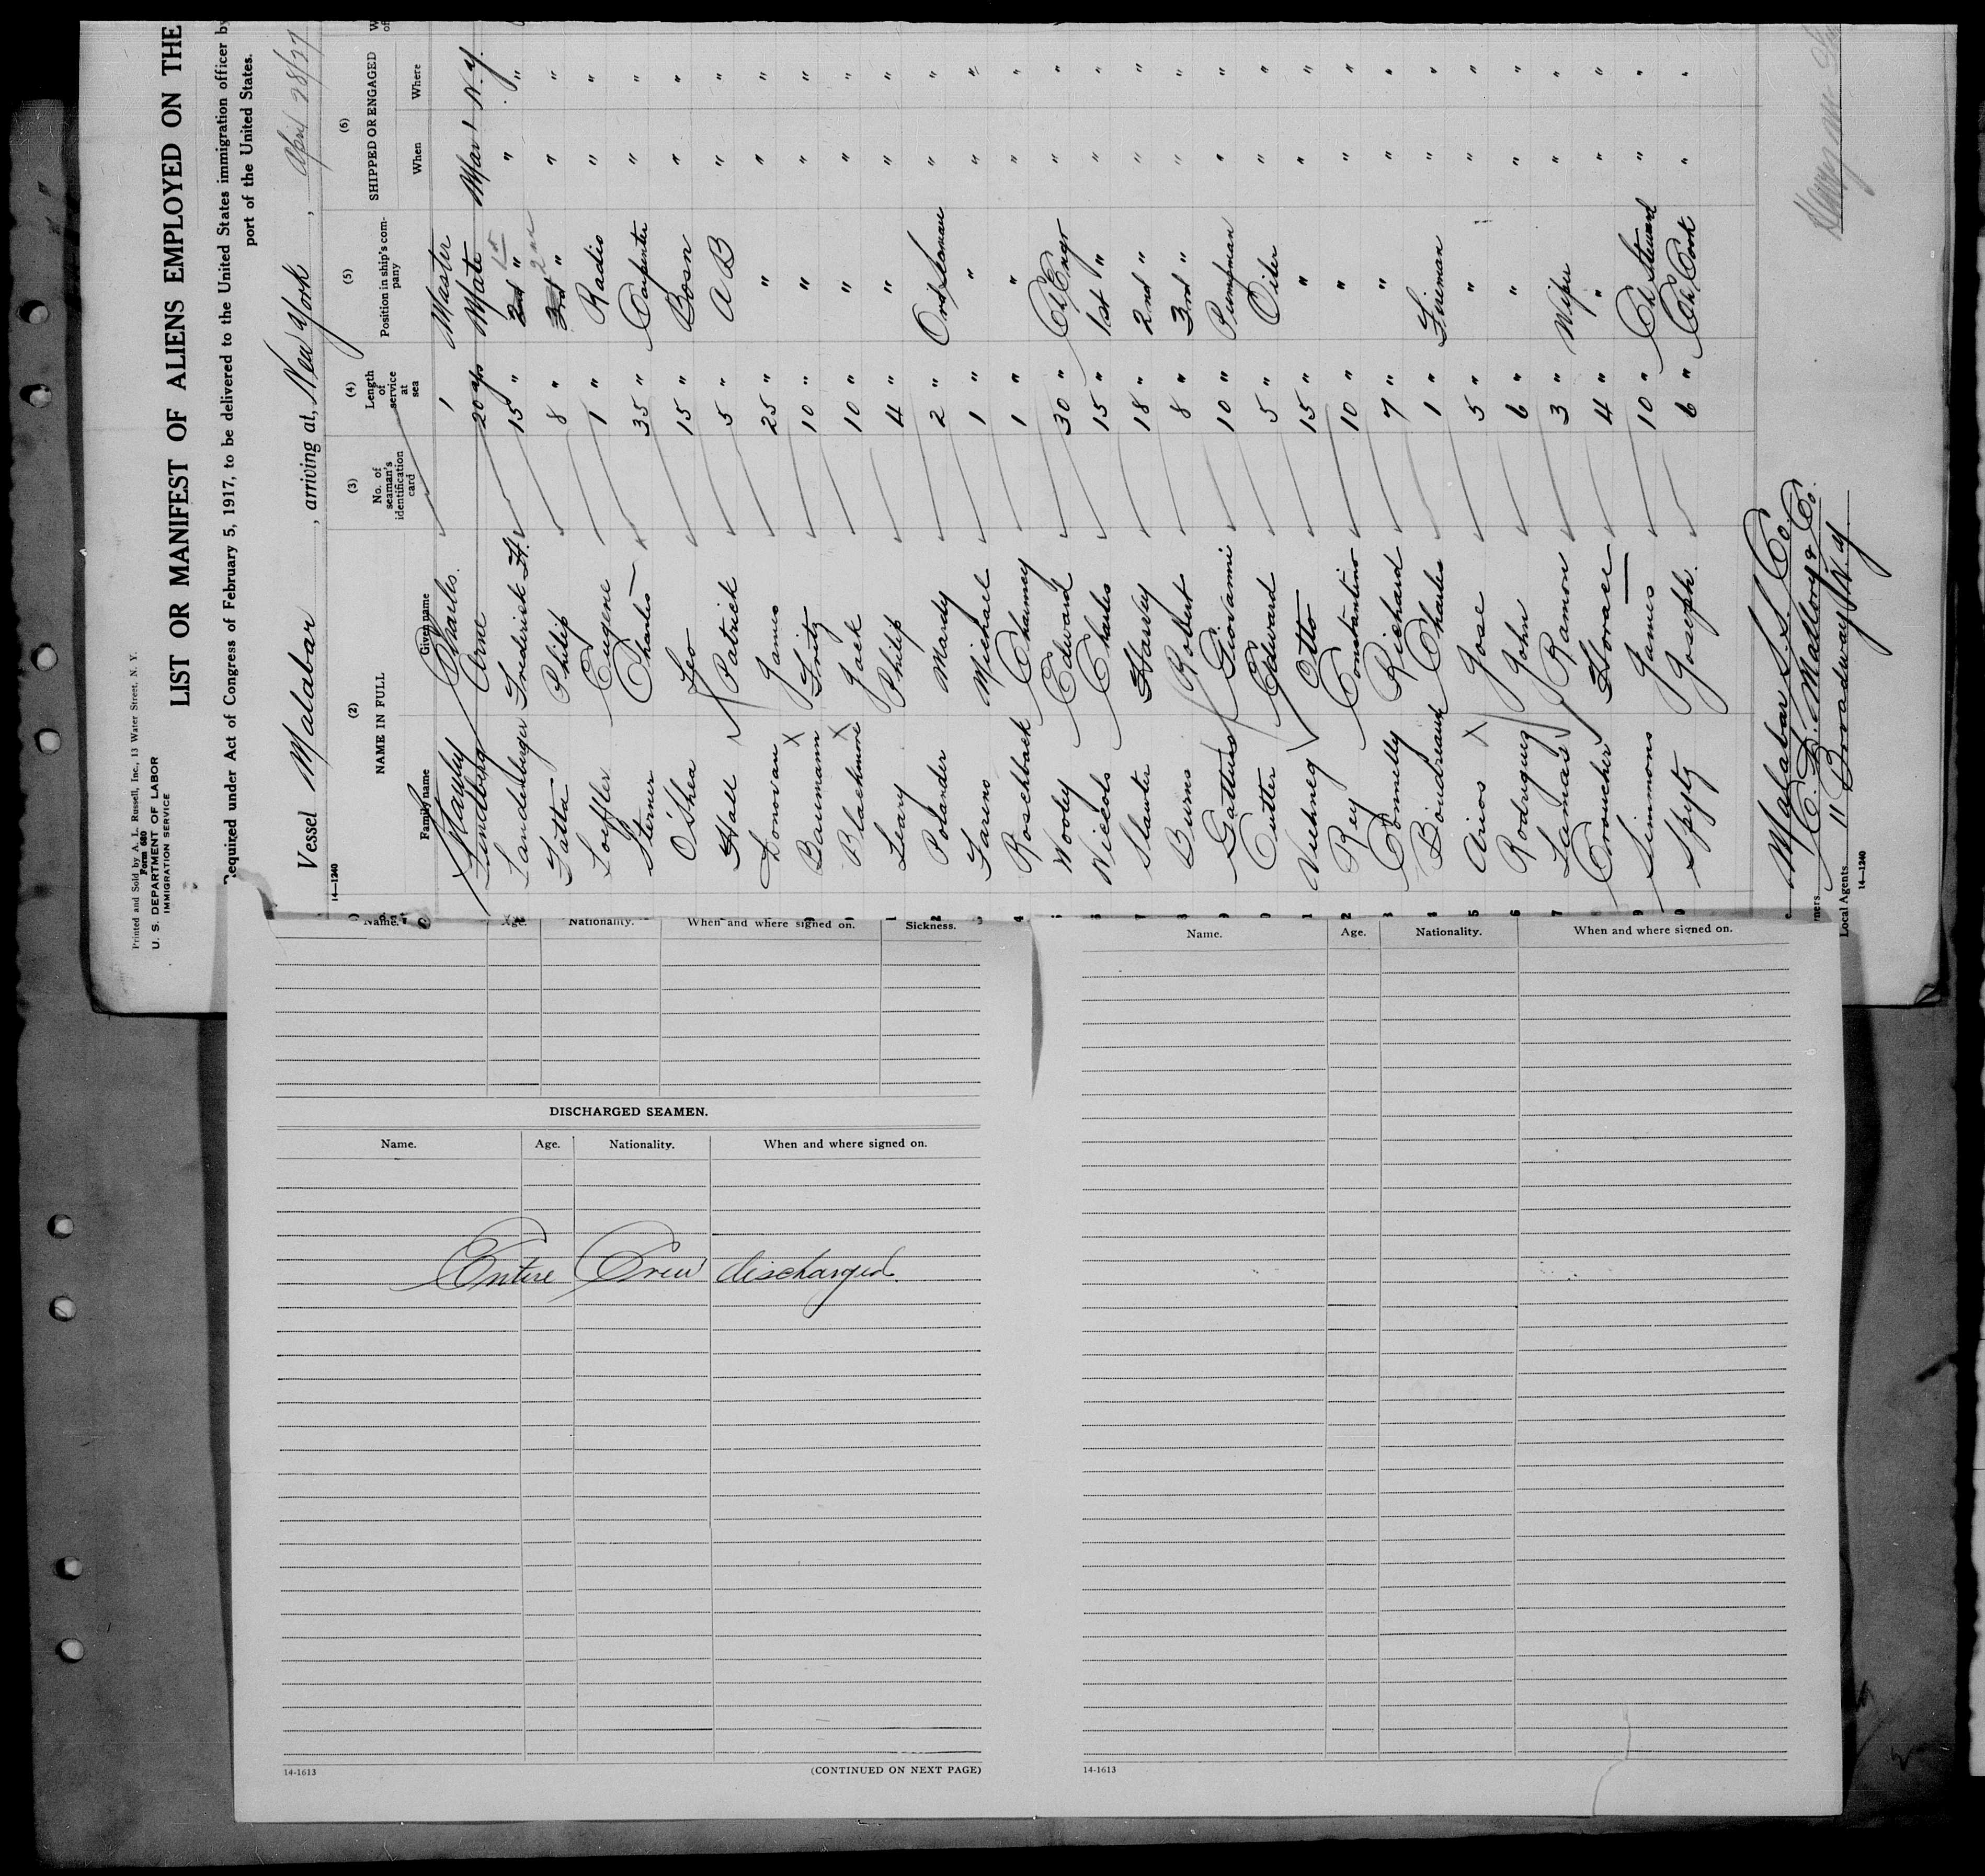 Printed and Sold by A. L. Russell, Inc., 13 Water Street, N. Y.
Form 680
U. S. DEPARTMENT OF LABOR
IMMIGRATION SERVICE
LIST OR MANIFEST OF ALIENS EMPLOYED ON THE
Required under Act of Congress of February 5, 1917, to be delivered to the United States immigration officer by
port of the United States.
Vessel Malabar, arriving at, New York, April 28/27
14—1240
(2) (3) (4) (5) (6)
NAME IN FULL No. of seaman's identification card Length of service at sea Position in ship's company SHIPPED OR ENGAGED
Family name Given name When Where
Charles. 1 Master
Lundberg Arne 20 yrs Mate Mar 1 N.Y.
Landenberger Frederick H. 15 " 2nd " " "
Tatta Philip 8 " 3rd " " "
Loeffler Eugene 1 " Radio " "
Sterner Charles 35 " Carpenter " "
O'Shea Leo 15 " Bosn " "
Hall Patrick 5 " A B " "
Donovan James 25 " " " "
Baumann Fritz 10 " " " "
Blackmore Jack 10 " " " "
Leary Philip 4 " " " "
Polander Mardy 2 " Ord Seaman " "
Farino Michael 1 " " " "
Roschback Chauncey 1 " " " "
Wooley Edward 30 " Ch Engr " "
Nicols Charles 15 " 1st " " "
Slawter Harvey 18 " 2nd " " "
Burns Robert 8 " 3rd " " "
Gattuso Giovanni 10 " Pumpman " "
Cutter Edward 5 " Oiler " "
Viehneg Otto 15 " " " "
Rey Constantino 10 " " " "
Connelly Richard 7 " " " "
Boudreaux Charles 1 " Fireman " "
Arios Jose 5 " " " "
Rodriguez John 6 " " " "
Lamas Ramon 3 " Wiper " "
Croucher Horace 4 " " " "
Simmons James 10 " Ch Steward " "
Spytz Joseph. 6 " Ch Cook " "
Malabar S.S. Co.
C. D. Mallory & Co.
Local Agents 11 Broadway N.Y.
14—1240
Name. Age. Nationality. When and where signed on. Sickness.
DISCHARGED SEAMEN.
Name. Age. Nationality. When and where signed on.
Entire Crew discharged.
14-1613
(CONTINUED ON NEXT PAGE)
Name. Age. Nationality. When and where signed on.
14-1613